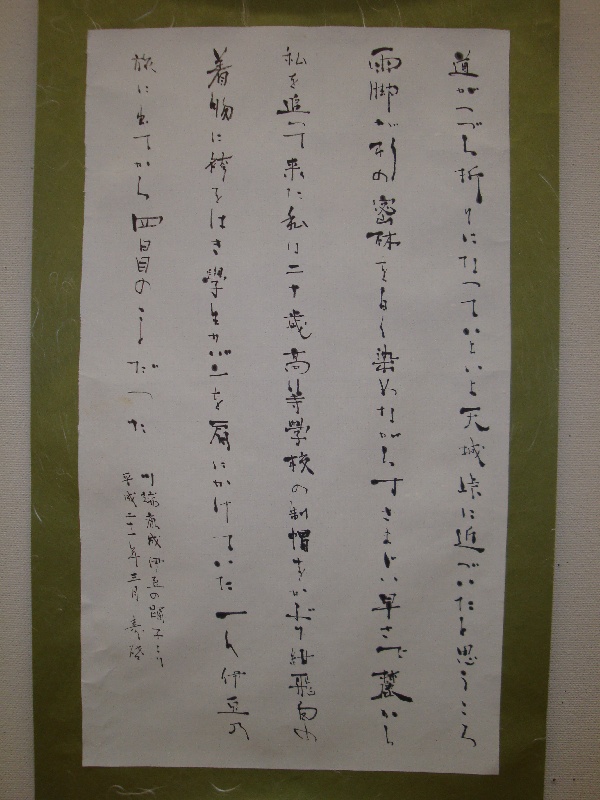 道がつづら折りになっていよいよ天城峠に近づいたと思うころ
雨脚が杉の密林を白く染めながらすさまじい早さで麓から
私を追って来た私は二十歳高等學校の制帽をかぶり紺飛白の
着物に袴をはき學生カバンを肩にかけていた一人伊豆の
旅に出てから四日目のことだった
川端康成伊豆の踊子より
平成二十一年三月